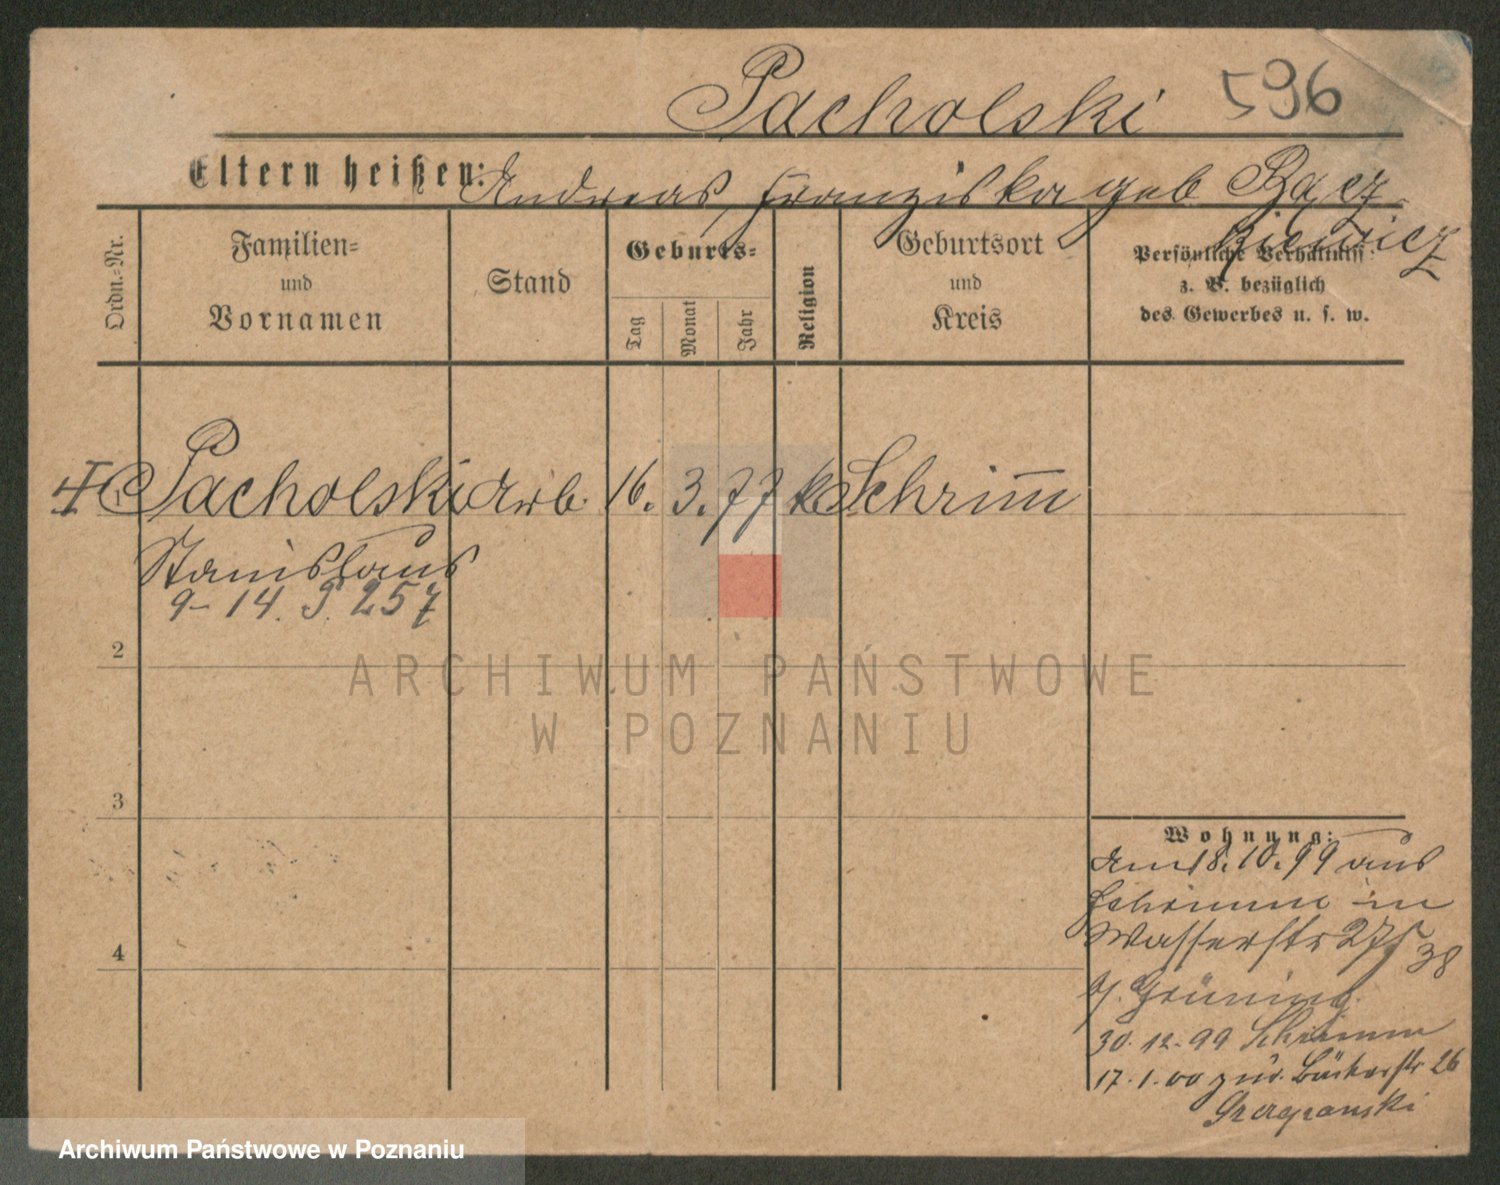 Pacholski 596
Eltern heißen: Andreas, Franziska geb Bącz-
kiewicz
Ordn.-Nr.
Familien-
und
Vornamen
Stand
Geburts-
Tag
Monat
Jahr
Religion
Geburtsort
und
Kreis
Persönliche Verhältniss
z. B. bezüglich
des Gewerbes u. s. w.
1 Pacholski Arb. 16. 3. 77 k Schrimm
Stanislaus
9-14. S. 257
2
3
4
Wohnung:
Am 18.10.99 aus
Schrimm in
Wasserstr 27/38
b. Grüning.
30.12.99 Schrimm
17.1.00 zur. Bäckerstr 26
ARCHIWUM PAŃSTWOWE
W POZNANIU
Archiwum Państwowe w Poznaniu